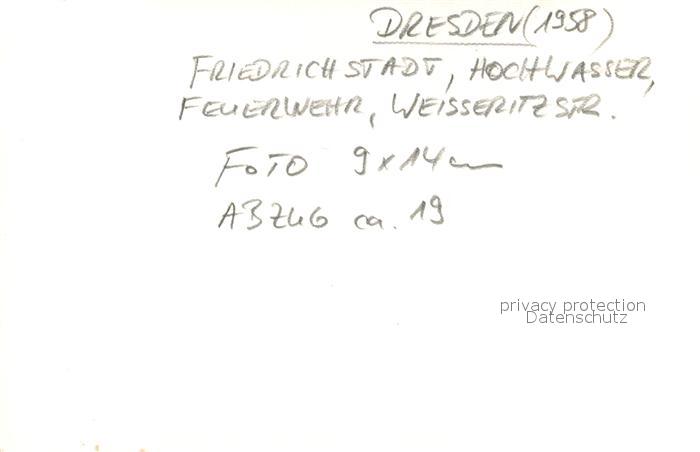 DRESDEN (1958)
FRIEDRICHSTADT, HOCHWASSER,
FEUERWEHR, WEISSERITZSTR.
FOTO 9x14cm
ABZUG ca. 19
privacy protection
Datenschutz